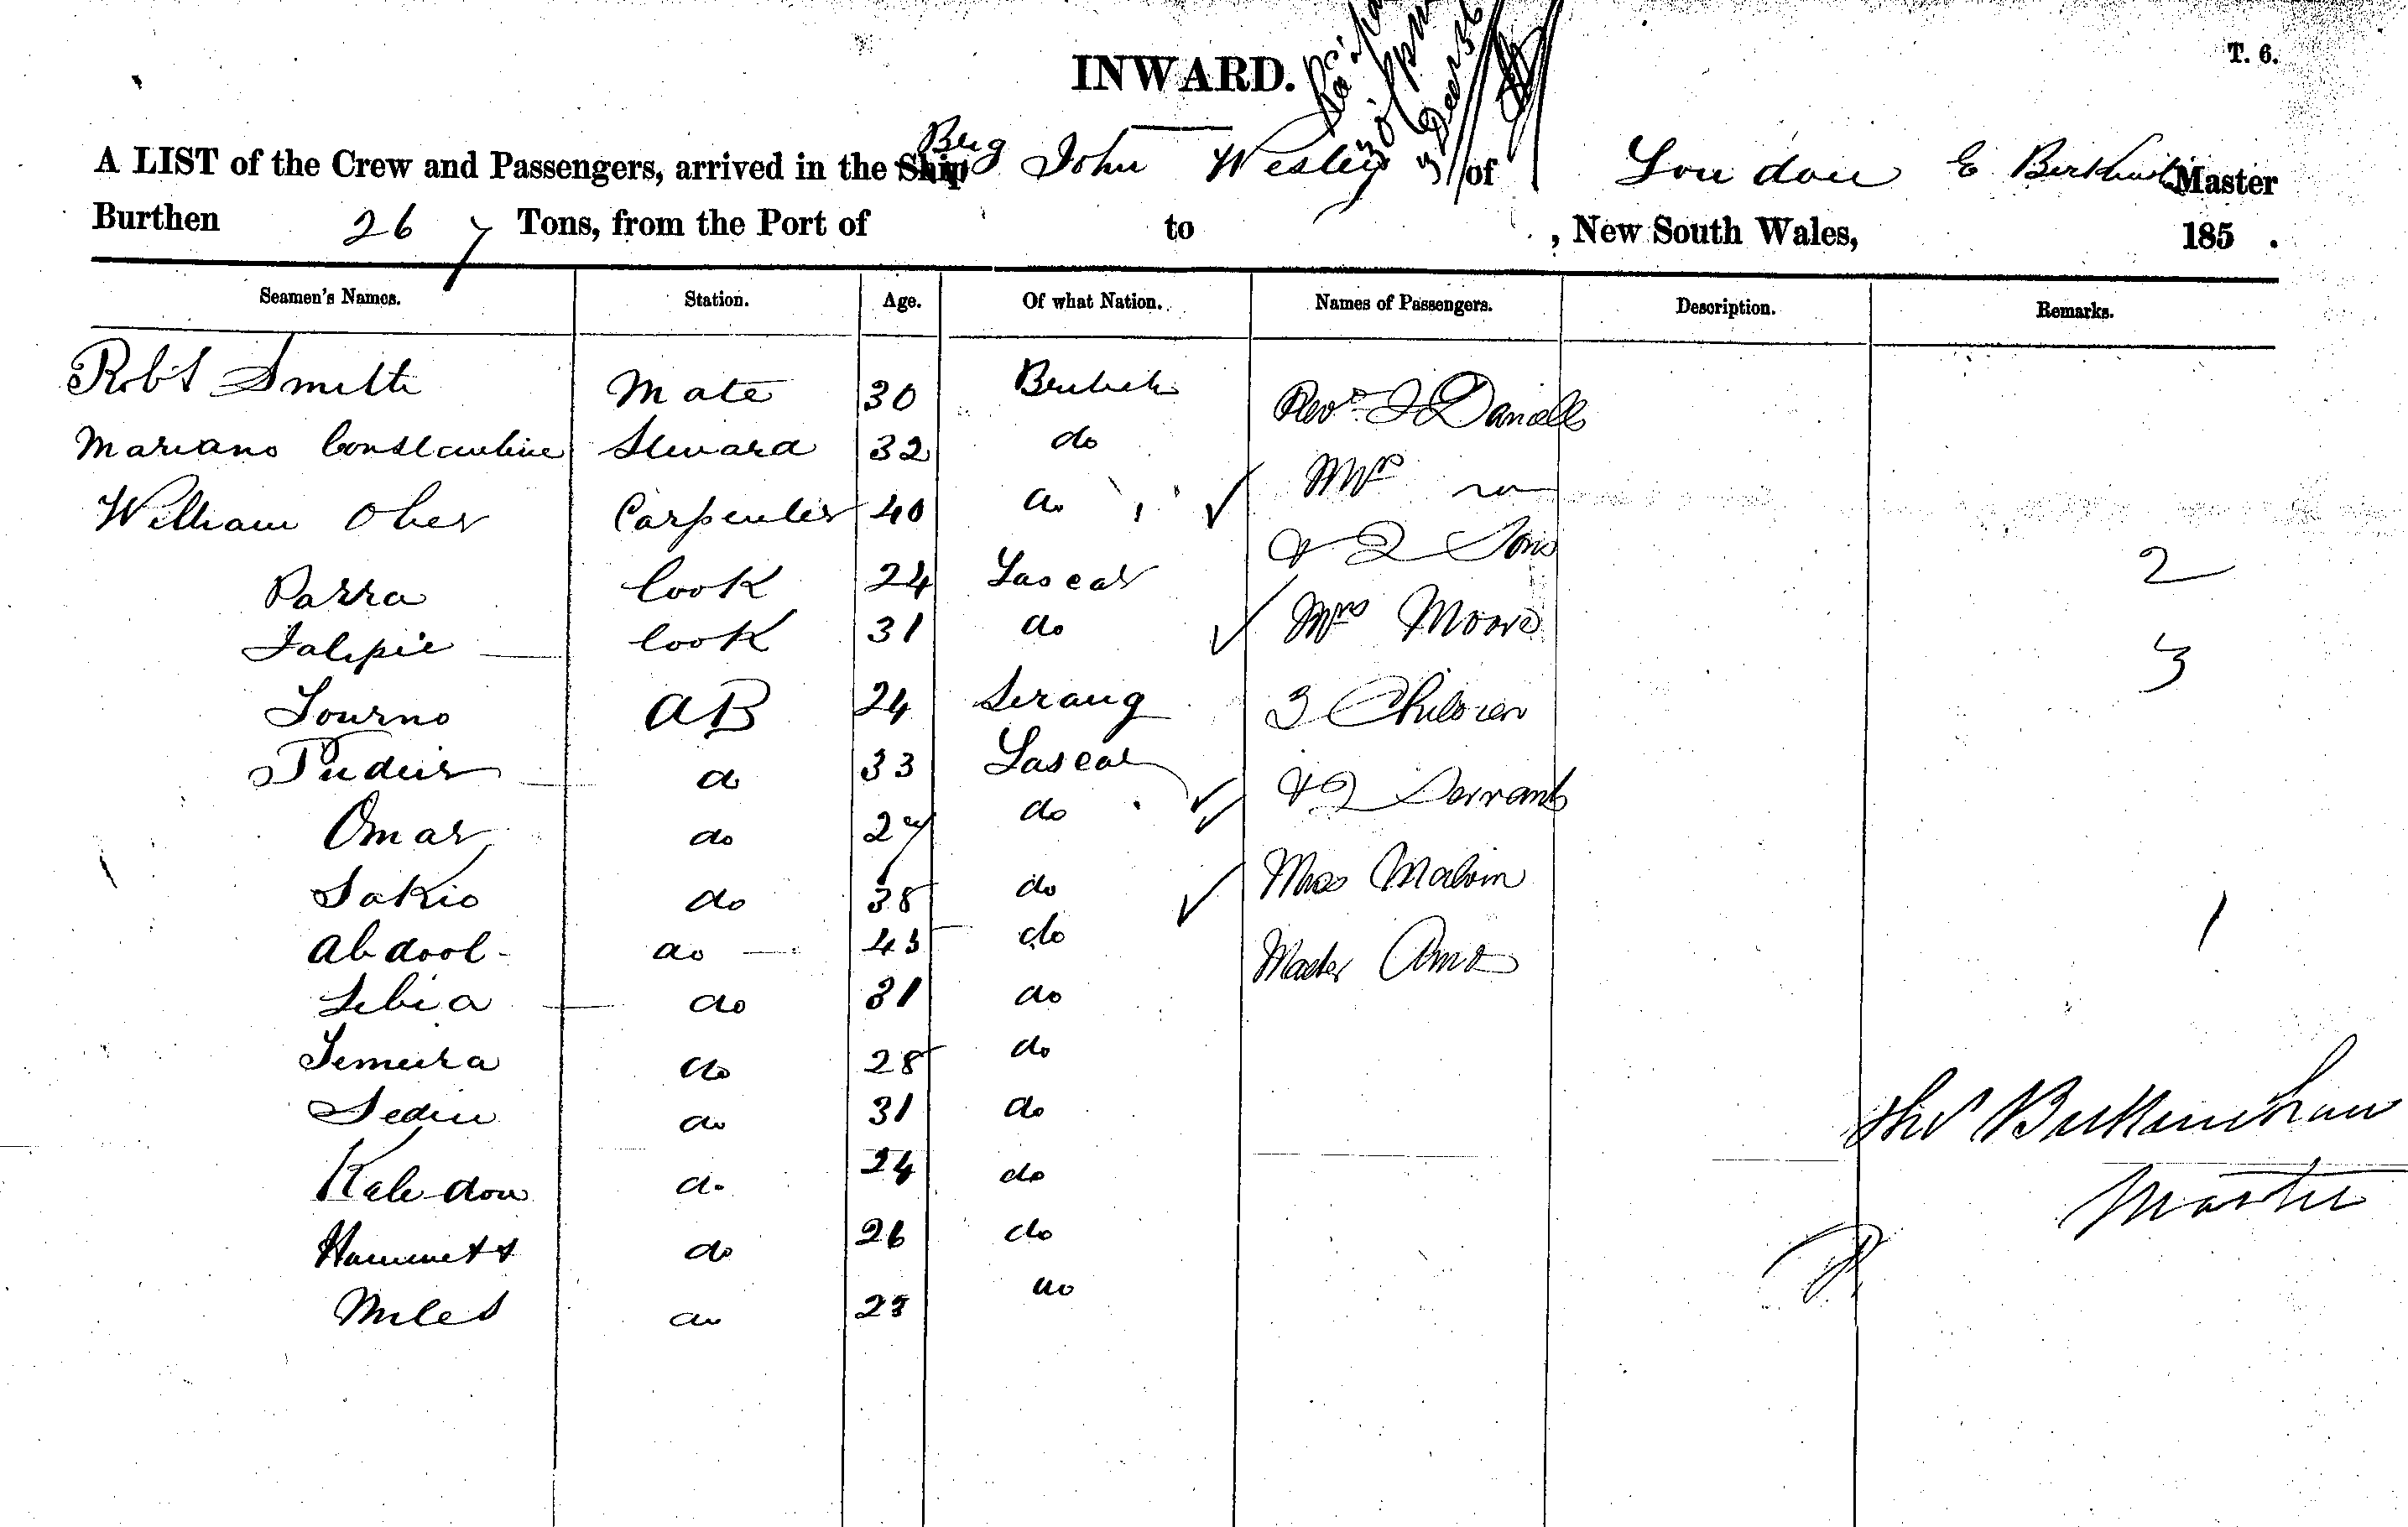 T. 6.
INWARD.
Brig
A LIST of the Crew and Passengers, arrived in the Ship John Wesley of London E Master
Burthen 267 Tons, from the Port of to , New South Wales, 185 .
Seamen's Names. Station. Age. Of what Nation. Names of Passengers. Description. Remarks.
Robt Smith Mate 30 British Revd J Daniells
Mariano Constantine Steward 32 do Mrs
William Ober Carpenter 40 do & 2 Sons
Parra Cook 24 Lascar 2
Cook 31 do Mrs Moore 3
Sourno AB 24 Serang 3 Children
do 33 Lascar & 2 Servants
Omar do 27 do
Sakio do 38 do Miss Malvin 1
Abdool do 43 do Master
Sebia do 31 do
do 28 do
do 31 do
do 24 do
do 26 do
Miles do 28 do
Master